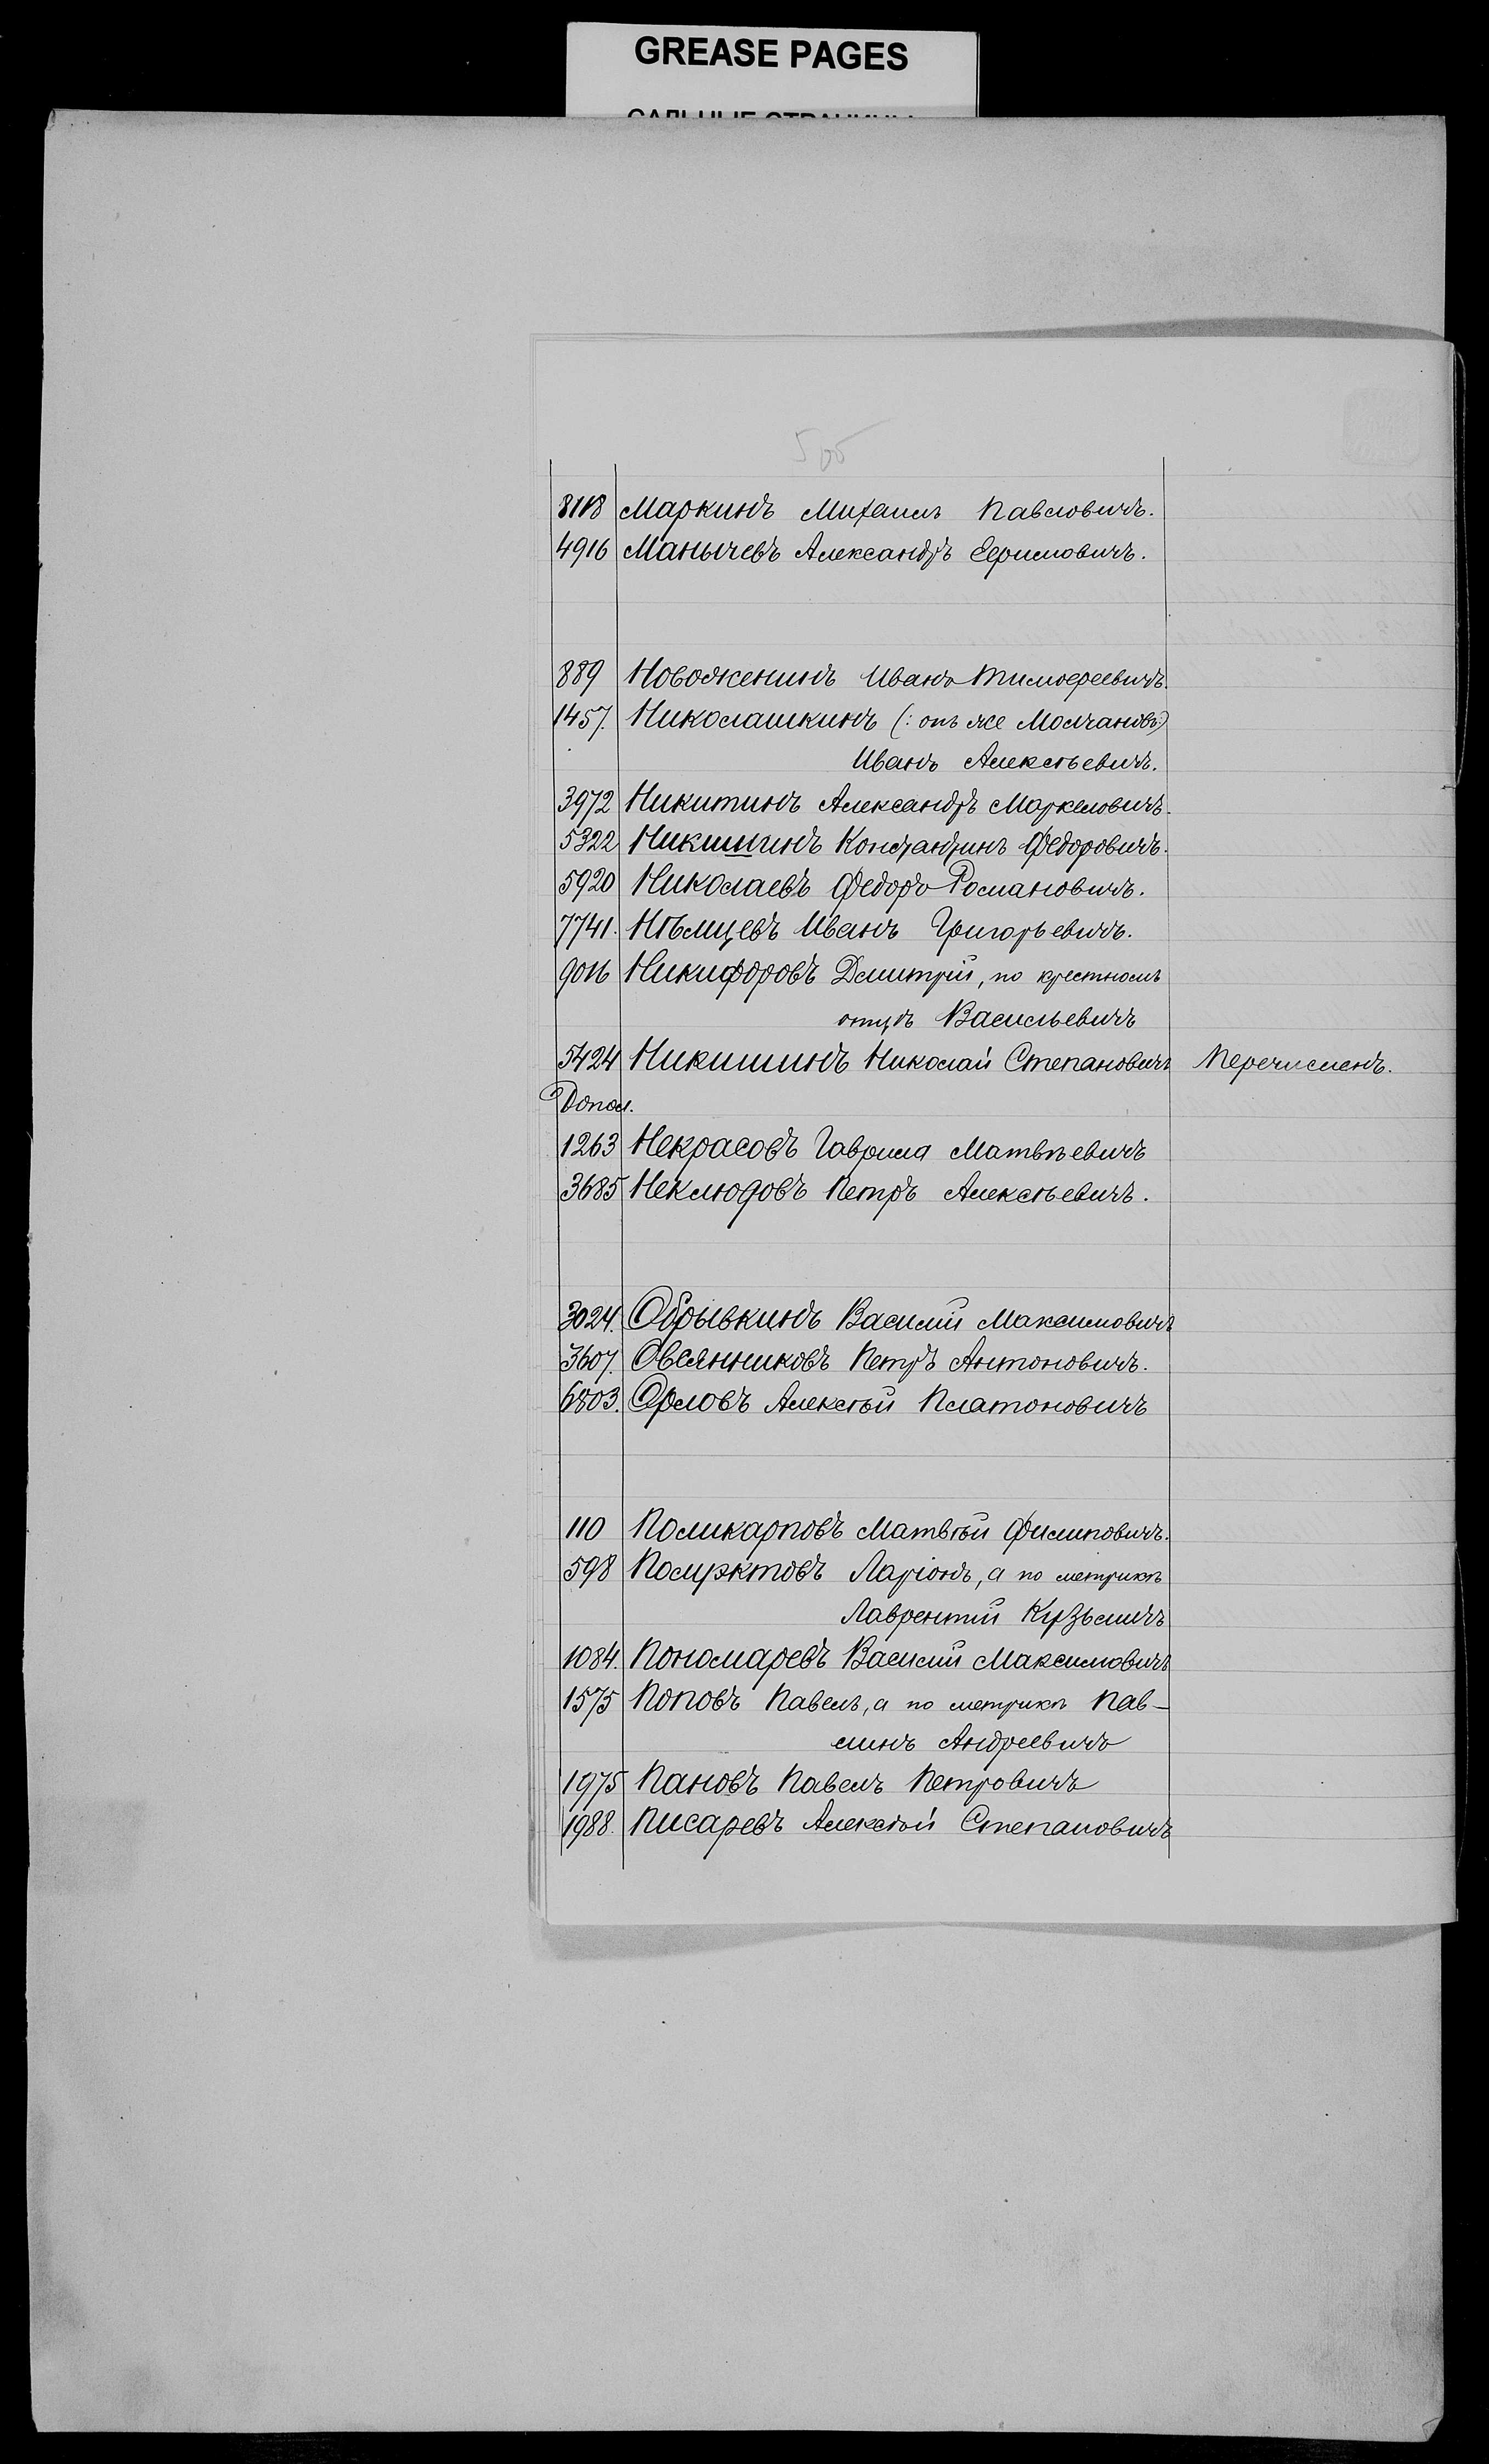 GREASE PAGES
САЛЬНЫЕ СТРАНИЦЫ
8118 Маркинъ Михаилъ Павловичъ.
4916 Манычевъ Александръ Ефимовичъ.
889 Новоженинъ Иванъ Тимофеевичъ.
1457. Николашкинъ (: онъ же Молчановъ:)
Иванъ Алексѣевичъ.
3972 Никитинъ Александръ Маркеловичъ.
5322 Никишинъ Константинъ Федоровичъ.
5920 Николаевъ Федоръ Романовичъ.
7741. Нѣмцевъ Иванъ Григорьевичъ.
9016 Никифоровъ Дмитрій, по крестномъ
отцѣ Васильевичъ
5424 Никишинъ Николай Степановичъ Перечисленъ.
Допол.
1263 Некрасовъ Гаврила Матвѣевичъ
3685 Неклюдовъ Петръ Алексѣевичъ.
3024. Обрывкинъ Василій Максимовичъ
3607. Овсянниковъ Петръ Антоновичъ.
6803. Орловъ Алексѣй Платоновичъ
110 Поликарповъ Матвѣй Филиповичъ.
598 Полуэктовъ Ларіонъ, а по метрикѣ
Лаврентій Кузьмичъ
1084. Пономаревъ Василій Максимовичъ
1575 Поповъ Павелъ, а по метрикѣ Пав-
линъ Андреевичъ
1975 Пановъ Павелъ Петровичъ
1988. Писаревъ Алексѣй Степановичъ